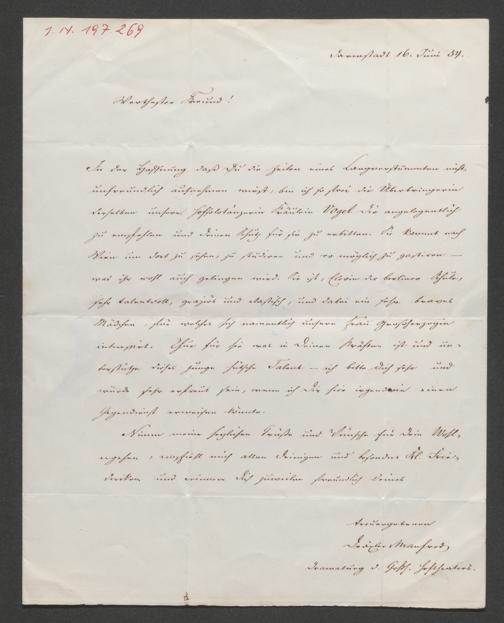 J. N. 197 269
Darmstadt 16. Juni 54.
Werthester Freund!
In der Hoffnung daß Du die Zeilen eines Langverstummten nicht
unfreundlich aufnehmen wirst, bin ich so frei die Überbringerin
derselben unsere Hofsolotänzerin Fräulein Vogel Dir angelegentlich
zu empfehlen und Deinen Schutz für sie zu erbitten. Sie kommt nach
Wien um dort zu sehen, zu studiren und wo möglich zu gastiren —
was ihr wohl auch gelingen wird. Sie ist, Elevin der berliner Schule,
sehr talentvoll, graziös und elastisch, und dabei ein sehr braves
Mädchen, für welche sich namentlich unsere Frau Großherzogin
interessirt. Thue für sie was in Deinen Kräften ist und un-
terstütze dieses junge hübsche Talent — ich bitte Dich sehr und
würde sehr erfreut sein, wenn ich Dir hier irgendwie einen
Gegendienst erweisen könnte.
Nimm meine herzlichen Grüße und Wünsche für Dein Wohl-
ergehen, empfiehl mich allen Deinigen und besonders Frie-
deriken und erinnere Dich zuweilen freundlich Deines
treuergebenen
Dräxler Manfred
Dramaturg d. Großh. Hoftheaters.